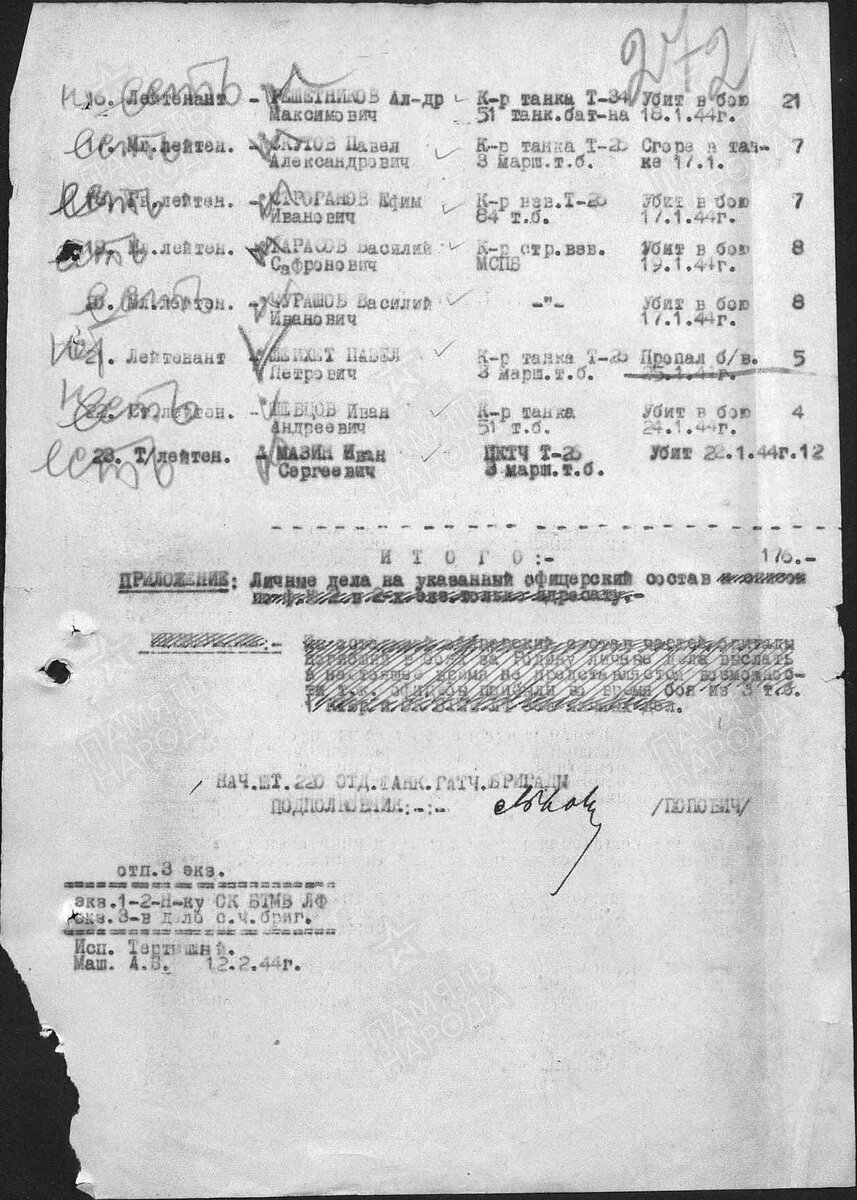 272
нет 16. Лейтенант - РЕШЕТНИКОВ Ал-др К-р танка Т-34 Убит в бою 21
Максимович 51 танк.бат-на 18.1.44г.
есть 17. Мл.лейтен. - СКУТОВ Павел К-р танка Т-26 Сгорел в тан- 7
Александрович 3 марш.т.б. ке 17.1.
есть лейтен. - СТРОГАНОВ Ефим К-р взв.Т-26 Убит в бою 7
Иванович 84 т.б. 17.1.44г.
есть 19. Мл.лейтен. КАРАСОВ Василий К-р стр.взв. Убит в бою 8
Сафронович МСПБ 19.1.44г.
есть 20. Мл.лейтен. - ФУРАШОВ Василий -"- Убит в бою 8
Иванович 17.1.44г.
нет 21. Лейтенант ШЕЙХЕТ ПАВЕЛ К-р танка Т-26 Пропал б/в. 5
Петрович 3 марш.т.б. 25.1.44г.
22. Ст.лейтен. - ШЕВЦОВ Иван К-р танка Убит в бою 4
Андреевич 51 т.б. 24.1.44г.
есть 23. Т/лейтен. МАЗИН Иван Т-26 Убит 22.1.44г. 12
Сергеевич 3 марш.т.б.
И Т О Г О :- 176.-
ПРИЛОЖЕНИЕ: Личные дела на указанный офицерский состав и список
в 2-х экз. только адресату.-
офицерский состав частей бригады
погибший в боях за Родину личные дела выслать
в настоящее время не представляется возможнос-
ти т.к. офицеры прибыли во время боя из 3 т.б.
НАЧ.ШТ.220 ОТД.ТАНК.ГАТЧ.БРИГАДЫ
ПОДПОЛКОВНИК:-:- /ПОПОВИЧ/
отп.3 экз.
экз.1-2-Н-ку ОК БТМВ ЛФ
экз.3-в дело с.ч.бриг.
Исп. Тертышний.
Маш. А.Б. 12.2.44г.
ПАМЯТЬ
НАРОДА